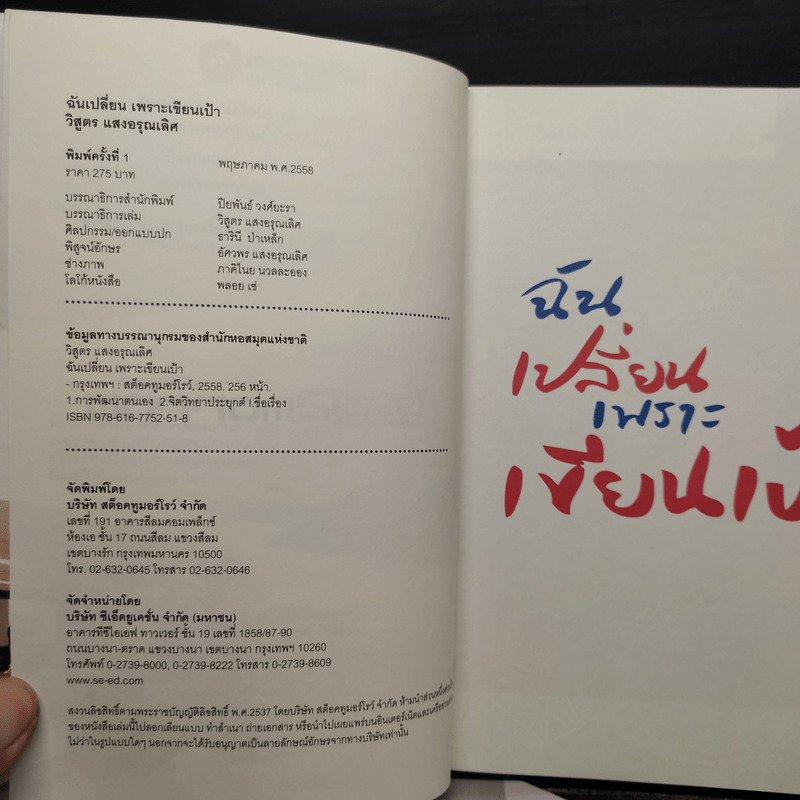 ฉันเปลี่ยน เพราะเขียนเป้า
วิสูตร แสงอรุณเลิศ
พิมพ์ครั้งที่ 1 พฤษภาคม พ.ศ.2558
ราคา 275 บาท
บรรณาธิการสำนักพิมพ์ ปิยพันธ์ วงศ์ยะรา
บรรณาธิการเล่ม วิสูตร แสงอรุณเลิศ
ศิลปกรรม/ออกแบบปก ธารินี ป่าเหล็ก
พิสูจน์อักษร อัศวพร แสงอรุณเลิศ
ช่างภาพ ภาคิไนย นวลละออง
โลโก้หนังสือ พลอย เซ่
ข้อมูลทางบรรณานุกรมของสำนักหอสมุดแห่งชาติ
วิสูตร แสงอรุณเลิศ
ฉันเปลี่ยน เพราะเขียนเป้า
- กรุงเทพฯ : สต็อคทูมอร์โรว์, 2558. 256 หน้า.
1.การพัฒนาตนเอง 2.จิตวิทยาประยุกต์ I.ชื่อเรื่อง
ISBN 978-616-7752-51-8
จัดพิมพ์โดย
บริษัท สต็อคทูมอร์โรว์ จำกัด
เลขที่ 191 อาคารสีลมคอมเพล็กซ์
ห้องเอ ชั้น 17 ถนนสีลม แขวงสีลม
เขตบางรัก กรุงเทพมหานคร 10500
โทร. 02-632-0645 โทรสาร 02-632-0646
จัดจำหน่ายโดย
บริษัท ซีเอ็ดยูเคชั่น จำกัด (มหาชน)
อาคารทีซีไอเอฟ ทาวเวอร์ ชั้น 19 เลขที่ 1858/87-90
ถนนบางนา-ตราด แขวงบางนา เขตบางนา กรุงเทพฯ 10260
โทรศัพท์ 0-2739-8000, 0-2739-8222 โทรสาร 0-2739-8609
www.se-ed.com
สงวนลิขสิทธิ์ตามพระราชบัญญัติลิขสิทธิ์ พ.ศ.2537 โดยบริษัท สต็อคทูมอร์โรว์ จำกัด ห้ามนำส่วนหนึ่งส่วนใด
ของหนังสือเล่มนี้ไปลอกเลียนแบบ ทำสำเนา ถ่ายเอกสาร หรือนำไปเผยแพร่บนอินเตอร์เน็ตและเครือข่าย
ไม่ว่าในรูปแบบใดๆ นอกจากจะได้รับอนุญาตเป็นลายลักษณ์อักษรจากทางบริษัทเท่านั้น
ฉัน
เปลี่ยน
เพราะ
เขียนเป้